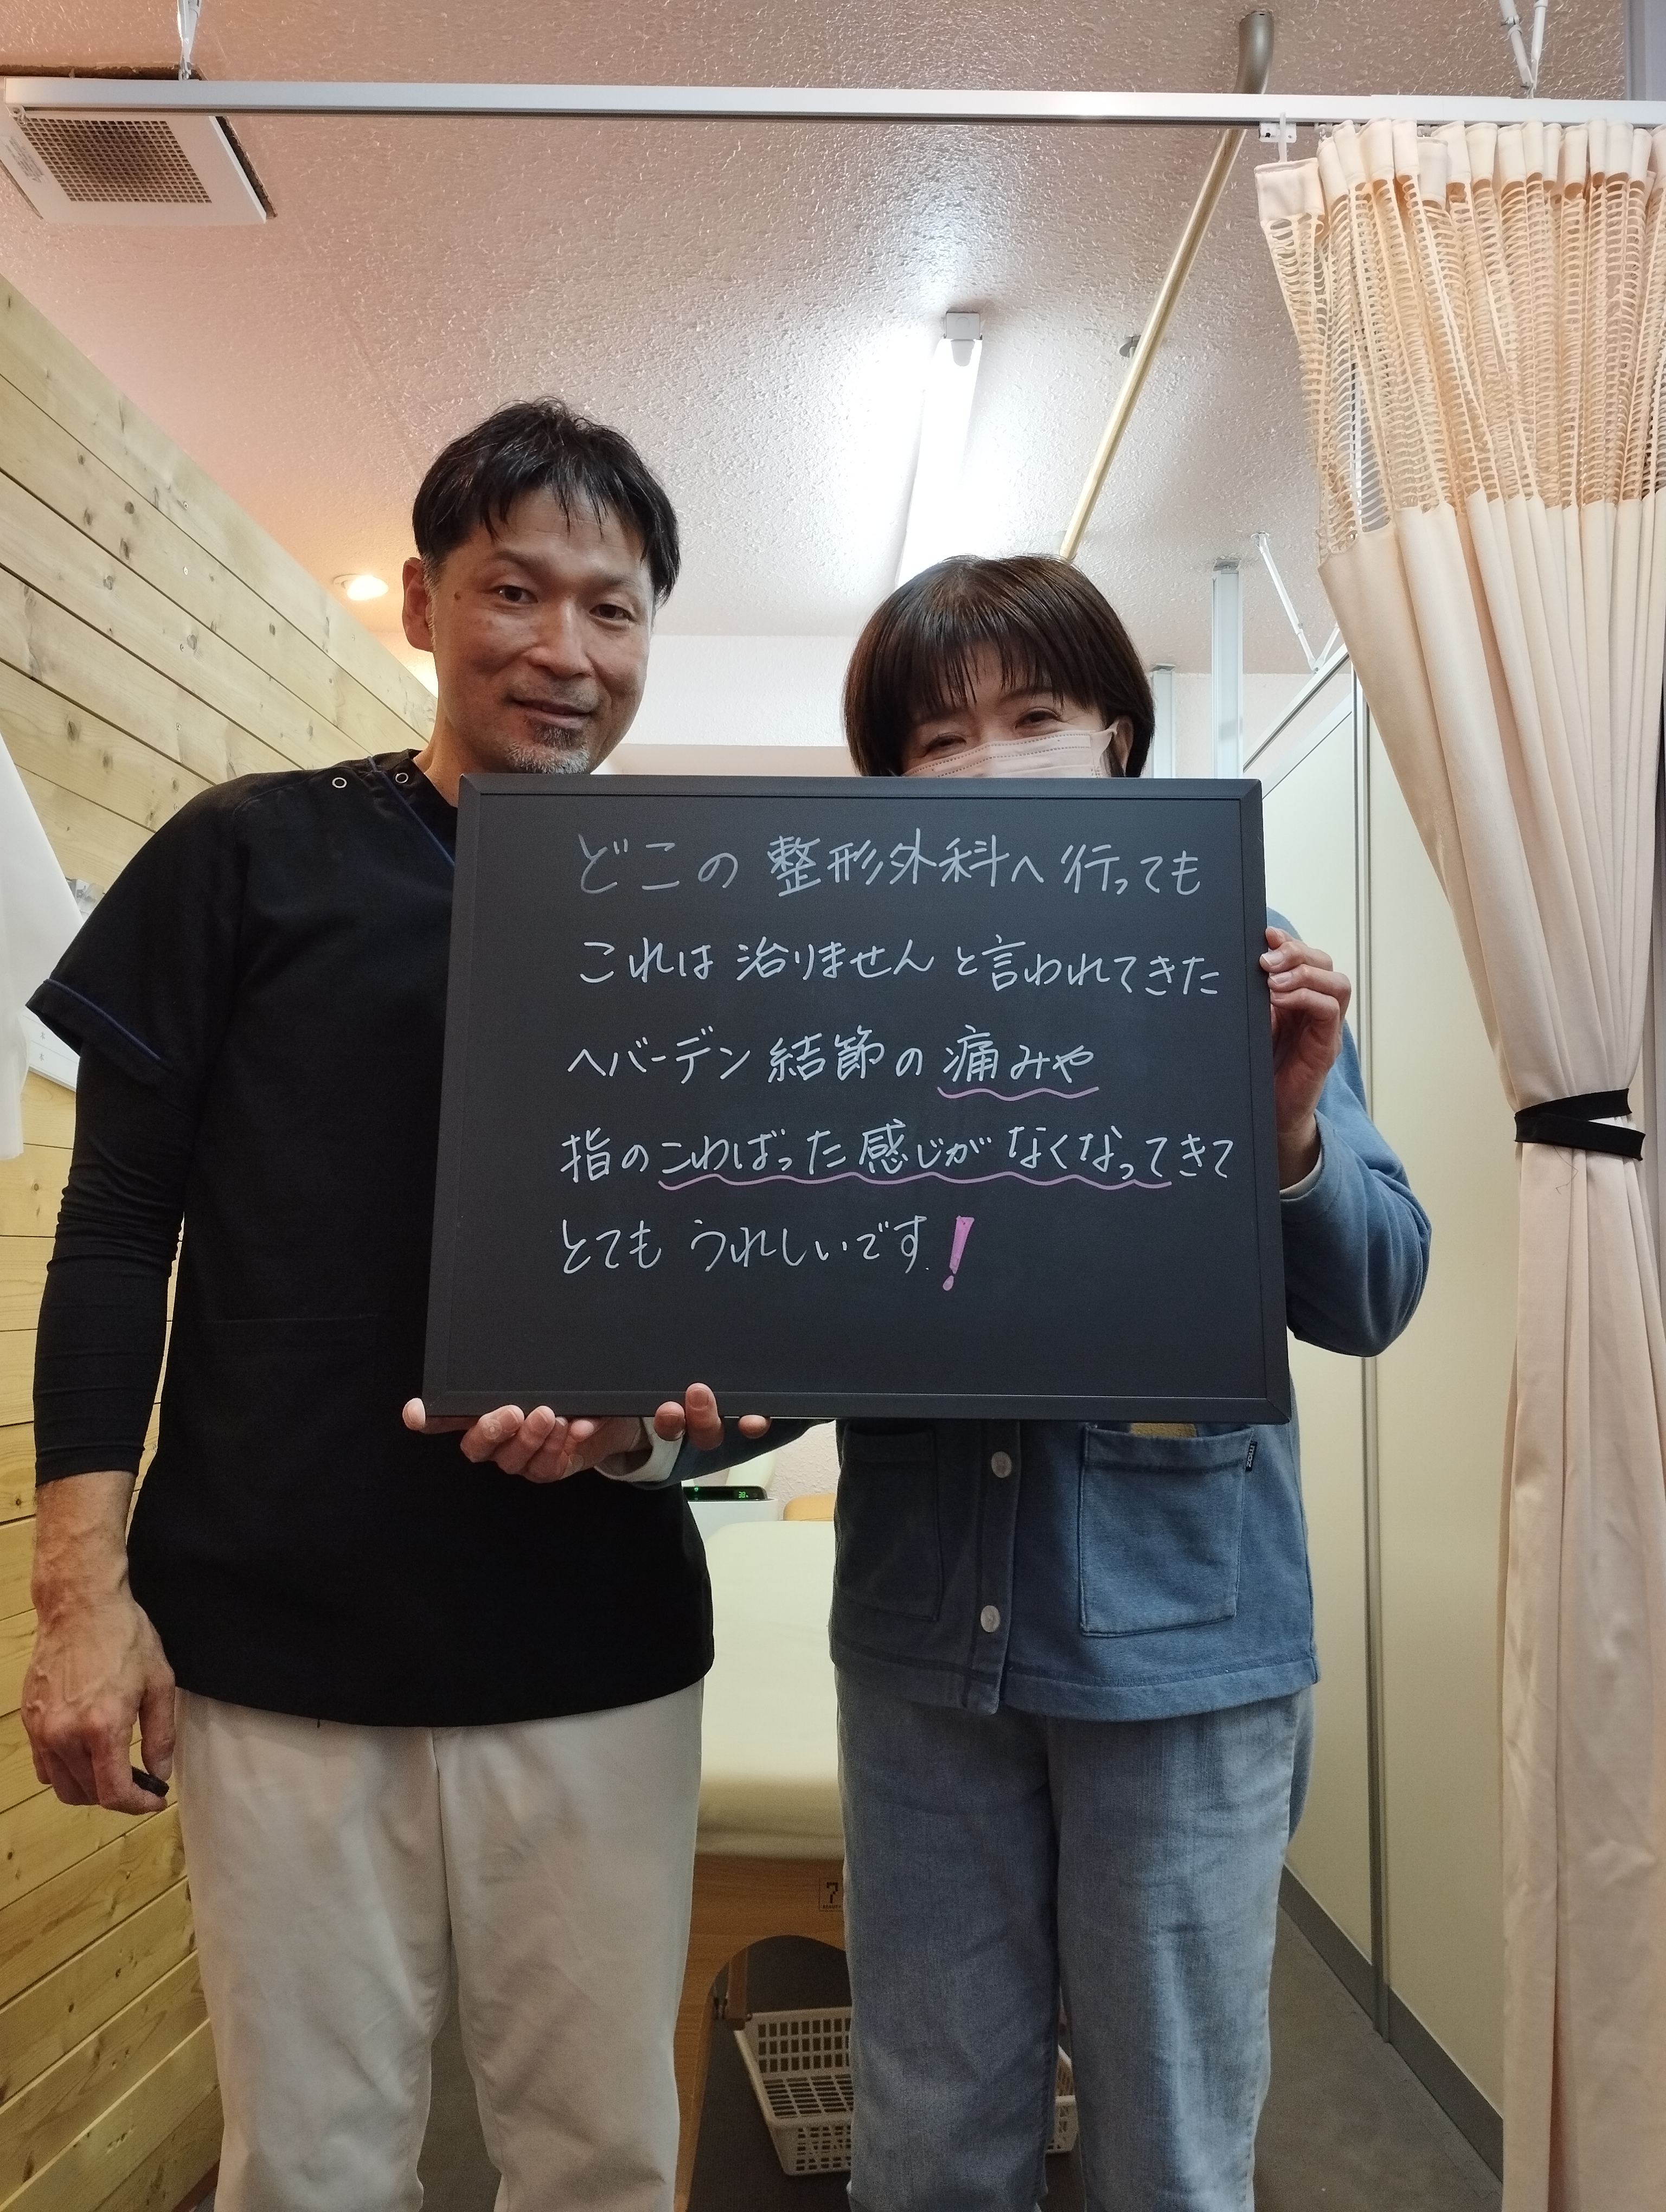 どこの整形外科へ行っても
これは治りませんと言われてきた
ヘバーデン結節の痛みや
指のこわばった感じがなくなってきて
とてもうれしいです!
moz
7